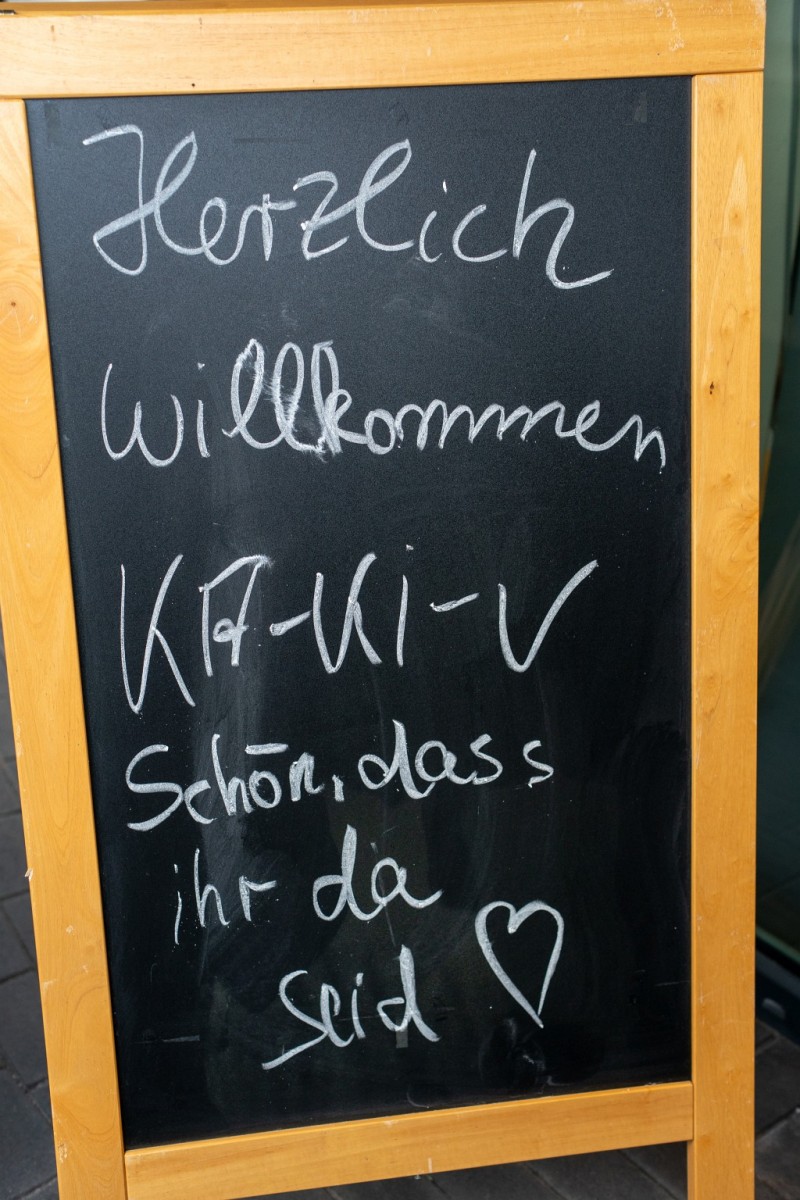 Herzlich
willkommen
KA-KI-V
Schön, dass
ihr da
seid ♡